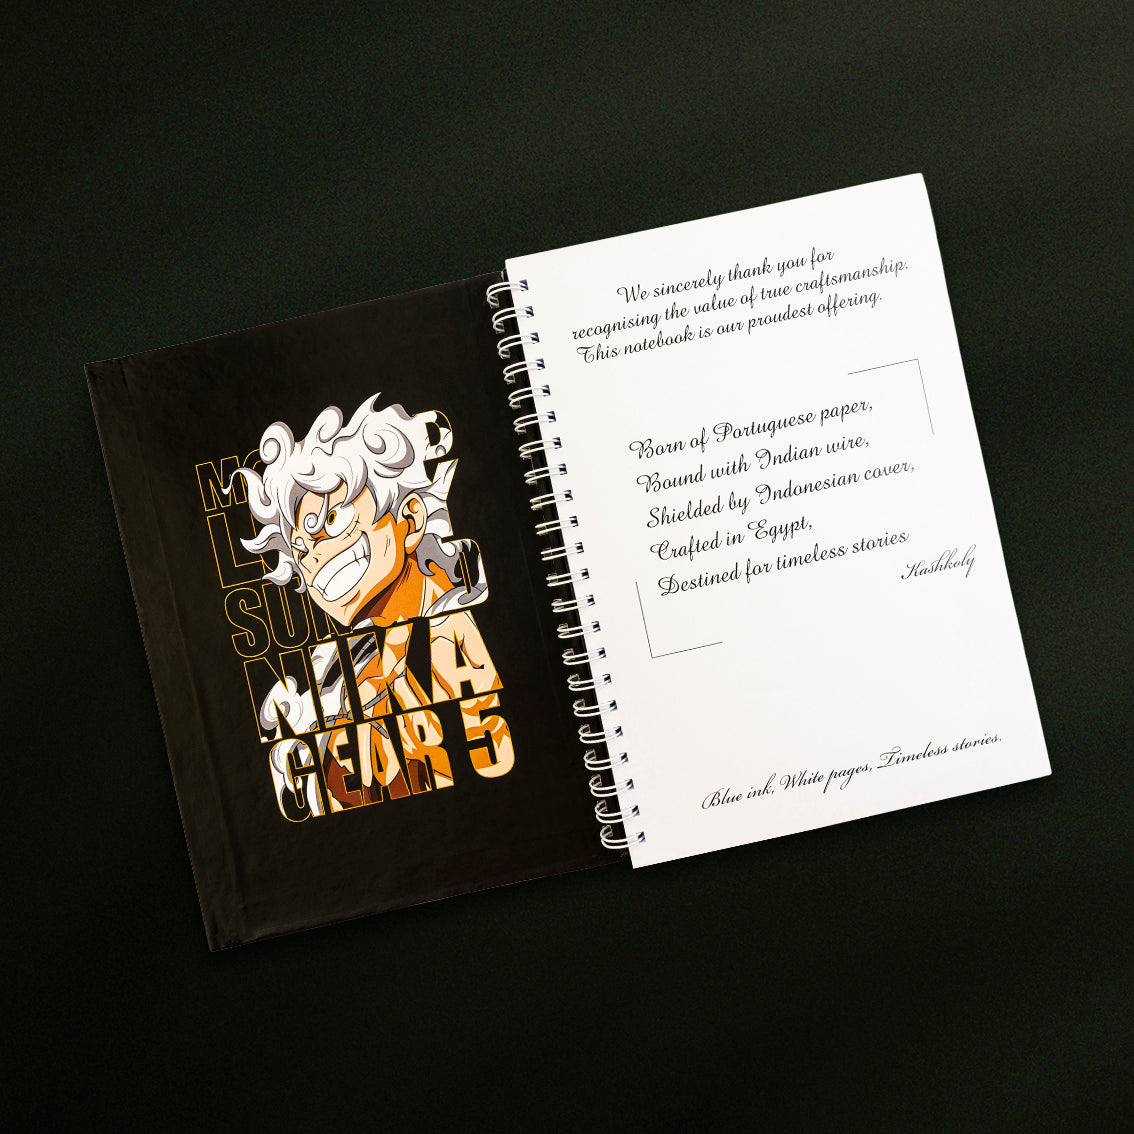 NIKA
GEAR 5
We sincerely thank you for
recognising the value of true craftsmanship.
This notebook is our proudest offering.
Born of Portuguese paper,
Bound with Indian wire,
Shielded by Indonesian cover,
Crafted in Egypt,
Destined for timeless stories
Kashkoly
Blue ink, White pages, Timeless stories.